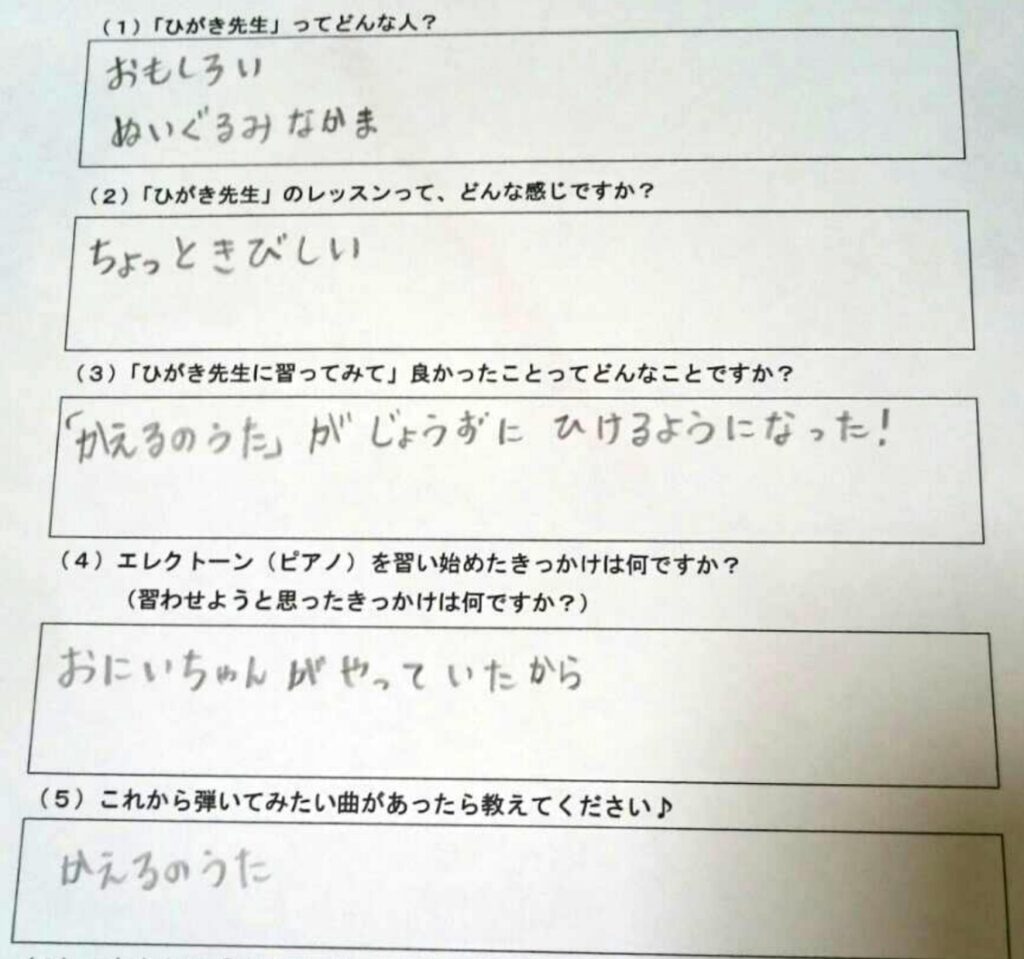 （1）「ひがき先生」ってどんな人？
おもしろい
ぬいぐるみなかま
（2）「ひがき先生」のレッスンって、どんな感じですか？
ちょっときびしい
（3）「ひがき先生に習ってみて」良かったことってどんなことですか？
「かえるのうた」がじょうずに ひけるようになった！
（4）エレクトーン（ピアノ）を習い始めたきっかけは何ですか？
（習わせようと思ったきっかけは何ですか？）
おにいちゃんがやっていたから
（5）これから弾いてみたい曲があったら教えてください♪
かえるのうた